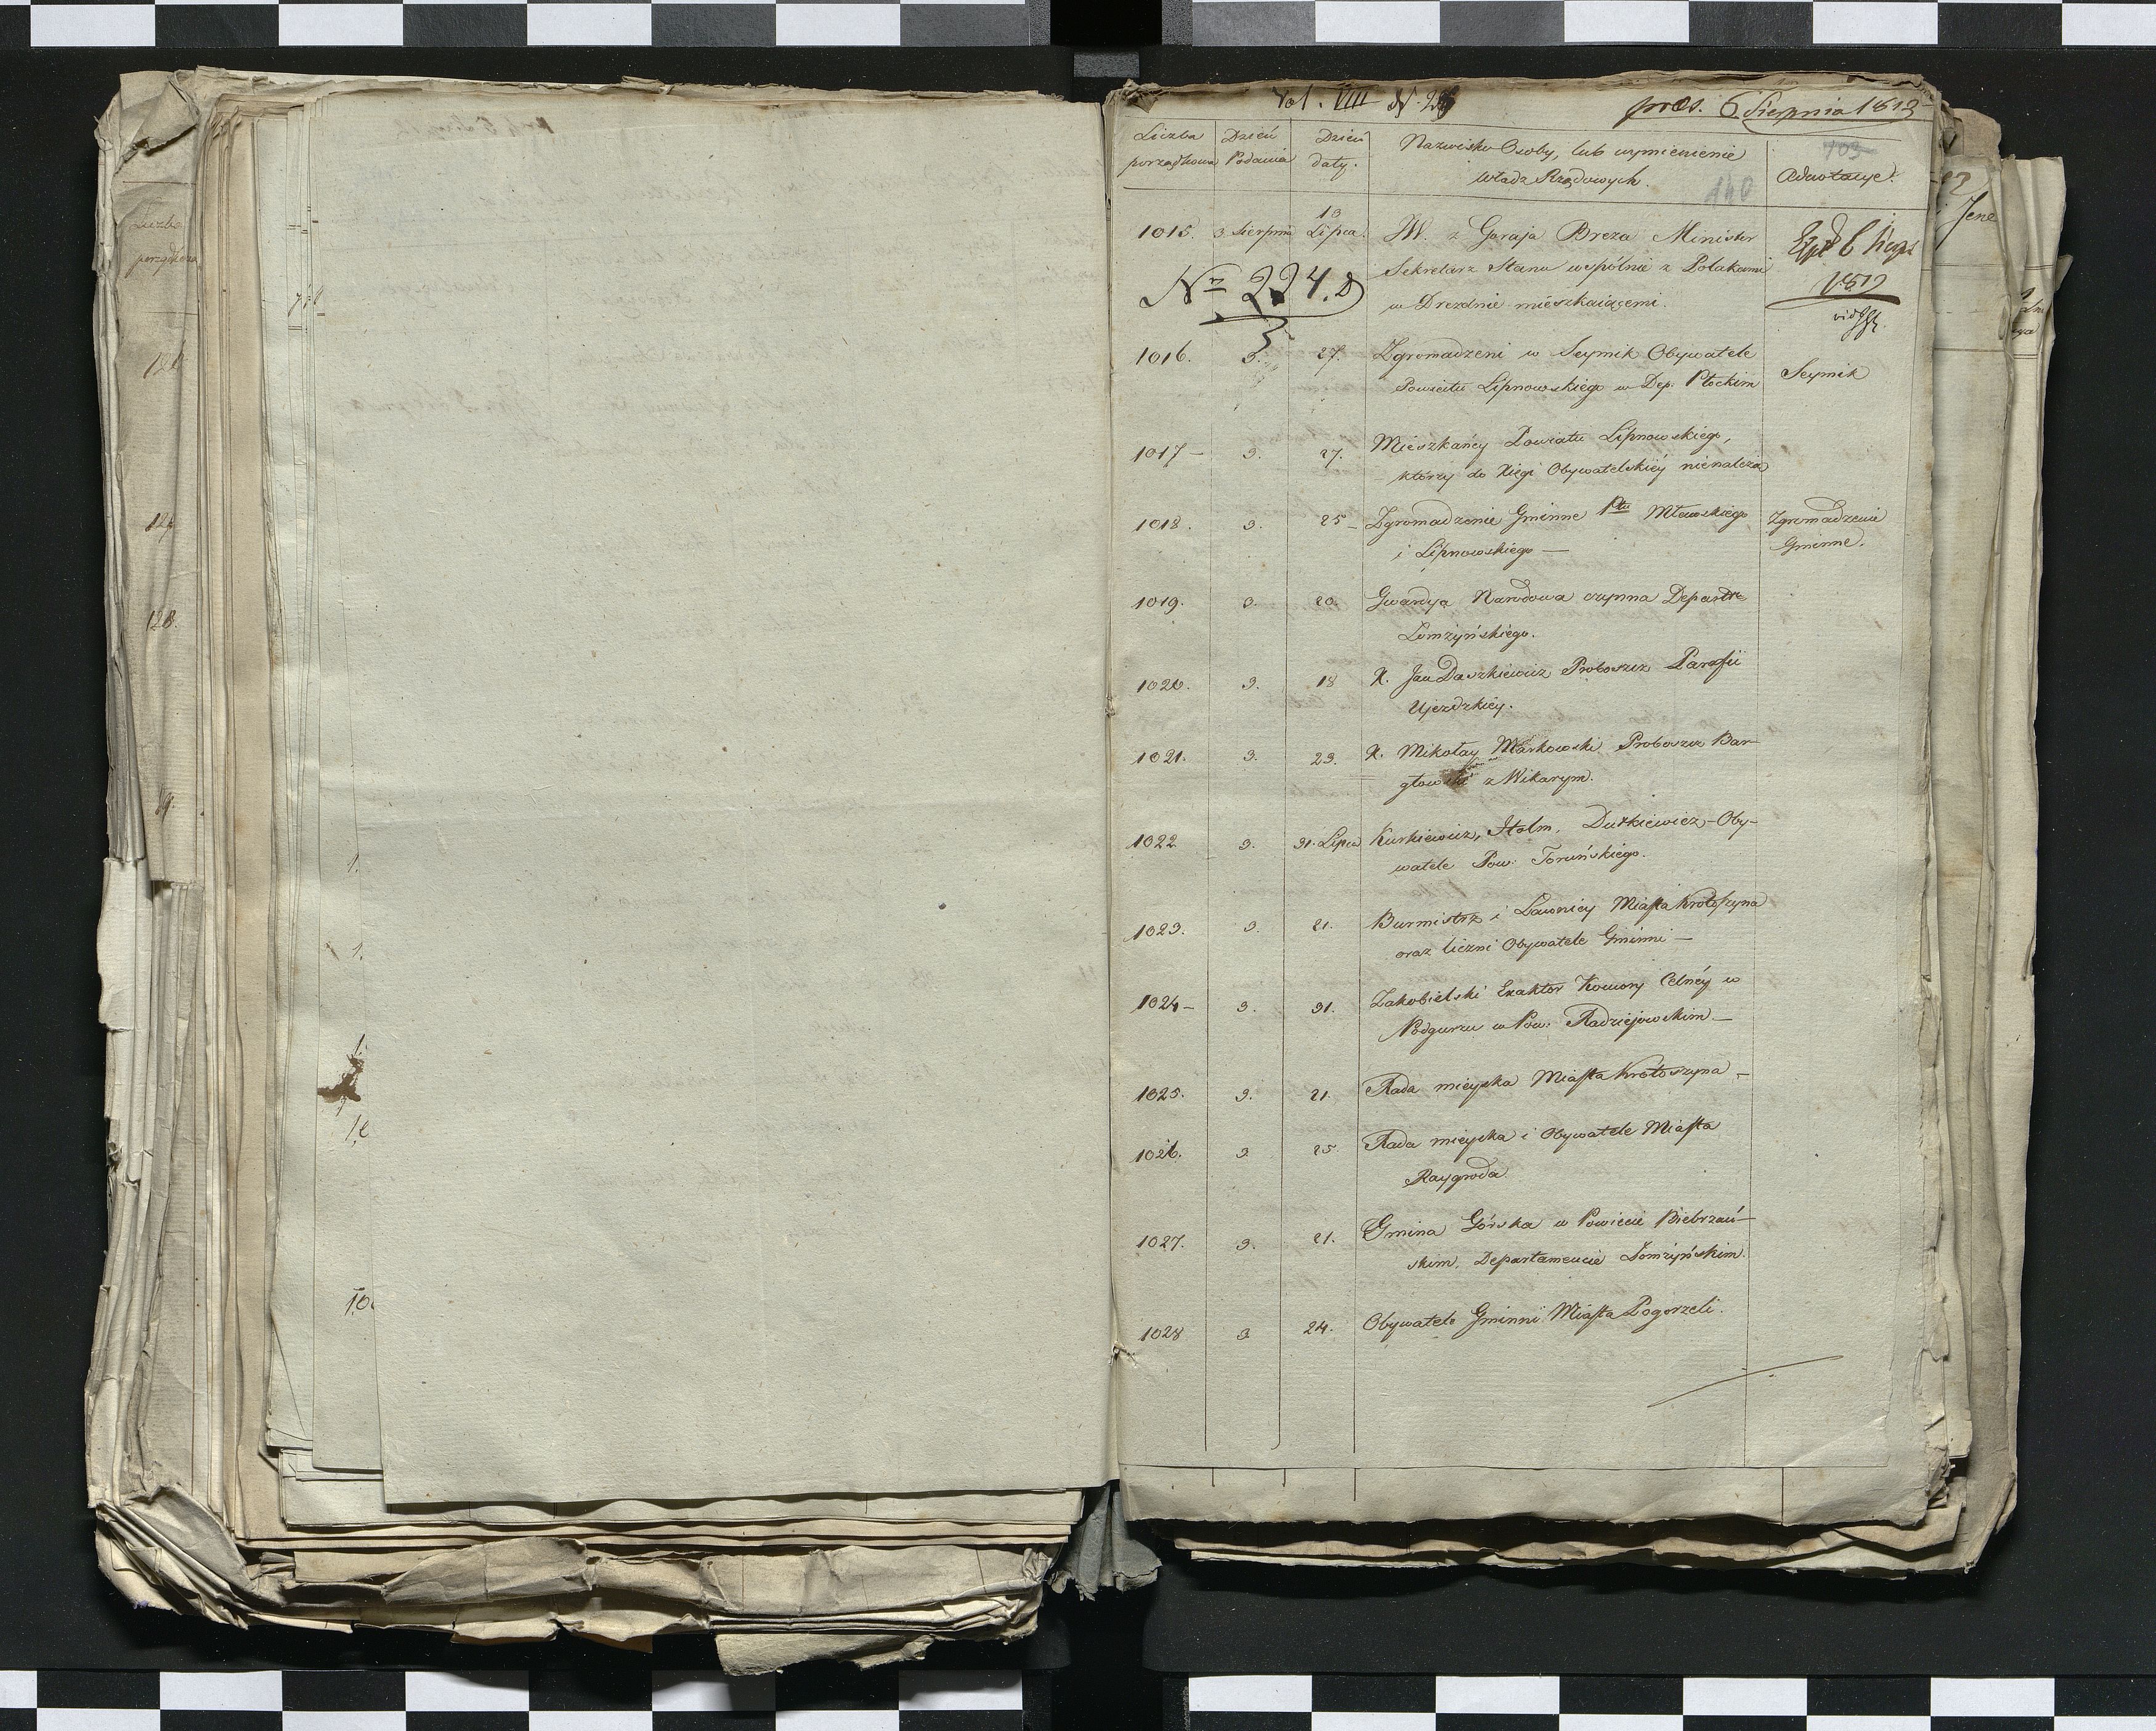 Vol. VIII N. 224
præs. 6 Sierpnia 1812
Liczba porządkowa
Dzień Podania
Dzień daty.
Nazwisko Osoby, lub wymienienie
Władz Rządowych.
Adnotacye.
103
140
1015. 3 Sierpnia 13 Lipca. JW. z Goraja Breza Minister
Sekretarz Stanu wspólnie z Polakami
w Dreznie mieszkaiącemi.
No 224. D
3
6 Sierp
1812
1016. 3. 27. Zgromadzeni w Seymik Obywatele
Powiatu Lipnowskiego w Dep. Płockim
Seymik
1017 - 3. 27. Mieszkańcy Powiatu Lipnowskiego,
którzy do Xięgi Obywatelskiéy nienależą
1018. 3. 25 - Zgromadzenie Gminne Ptu Mławskiego
i Lipnowskiego —
Zgromadzenie
Gminne.
1019. 3. 20. Gwardya Narodowa czynna Departtu
Łomżyńskiego.
1020. 3. 18 X. Jan Daszkiewicz Proboszcz Parafii
Ujezdzkiey.
1021. 3. 23. X. Mikołay Markowski Proboszcz Bar-
głowski z Wikarym.
1022 3. 31. Lipca Kurkiewicz, Holm, Dutkiewicz - Oby-
watele Pow. Toruńskiego.
1023. 3. 21. Burmistrz i Ławnicy Miasta Krotoszyna
oraz liczni Obywatele Gminni —
1024 - 3. 31. Zakobielski Exaktor Komory Celnéy w
Podgurzu w Pow. Radziejowskim —
1025. 3. 21. Rada mieyska Miasta Krotoszyna -
1026. 3 25. Rada mieyska i Obywatele Miasta
Raygroda.
1027. 3. 21. Gmina Górska w Powiecie Biebrzań-
skim, Departamencie Łomżyńskim.
1028 3 24. Obywatele Gminni Miasta Pogorzeli.